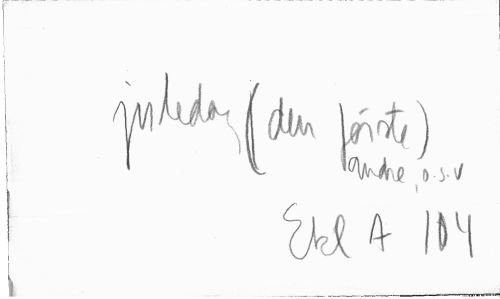 juledag (den første)
andre, o.s.v
Ekl A 104